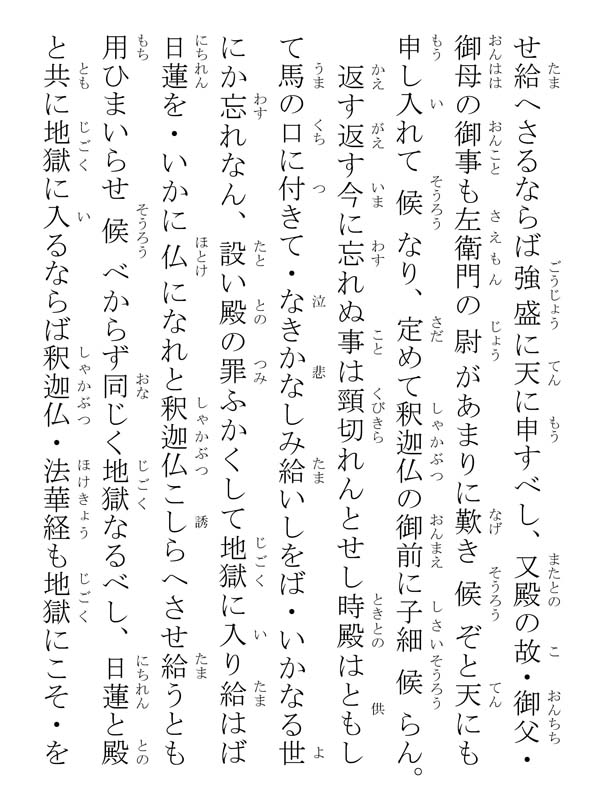 せ給へさるならば強盛に天に申すべし、又殿の故・御父・
御母の御事も左衛門の尉があまりに歎き候ぞと天にも
申し入れて候なり、定めて釈迦仏の御前に子細候らん。
返す返す今に忘れぬ事は頸切れんとせし時殿はともし
て馬の口に付きて・なきかなしみ給いしをば・いかなる世
にか忘れなん、設い殿の罪ふかくして地獄に入り給はば
日蓮を・いかに仏になれと釈迦仏こしらへさせ給うとも
用ひまいらせ候べからず同じく地獄なるべし、日蓮と殿
と共に地獄に入るならば釈迦仏・法華経も地獄にこそ・を